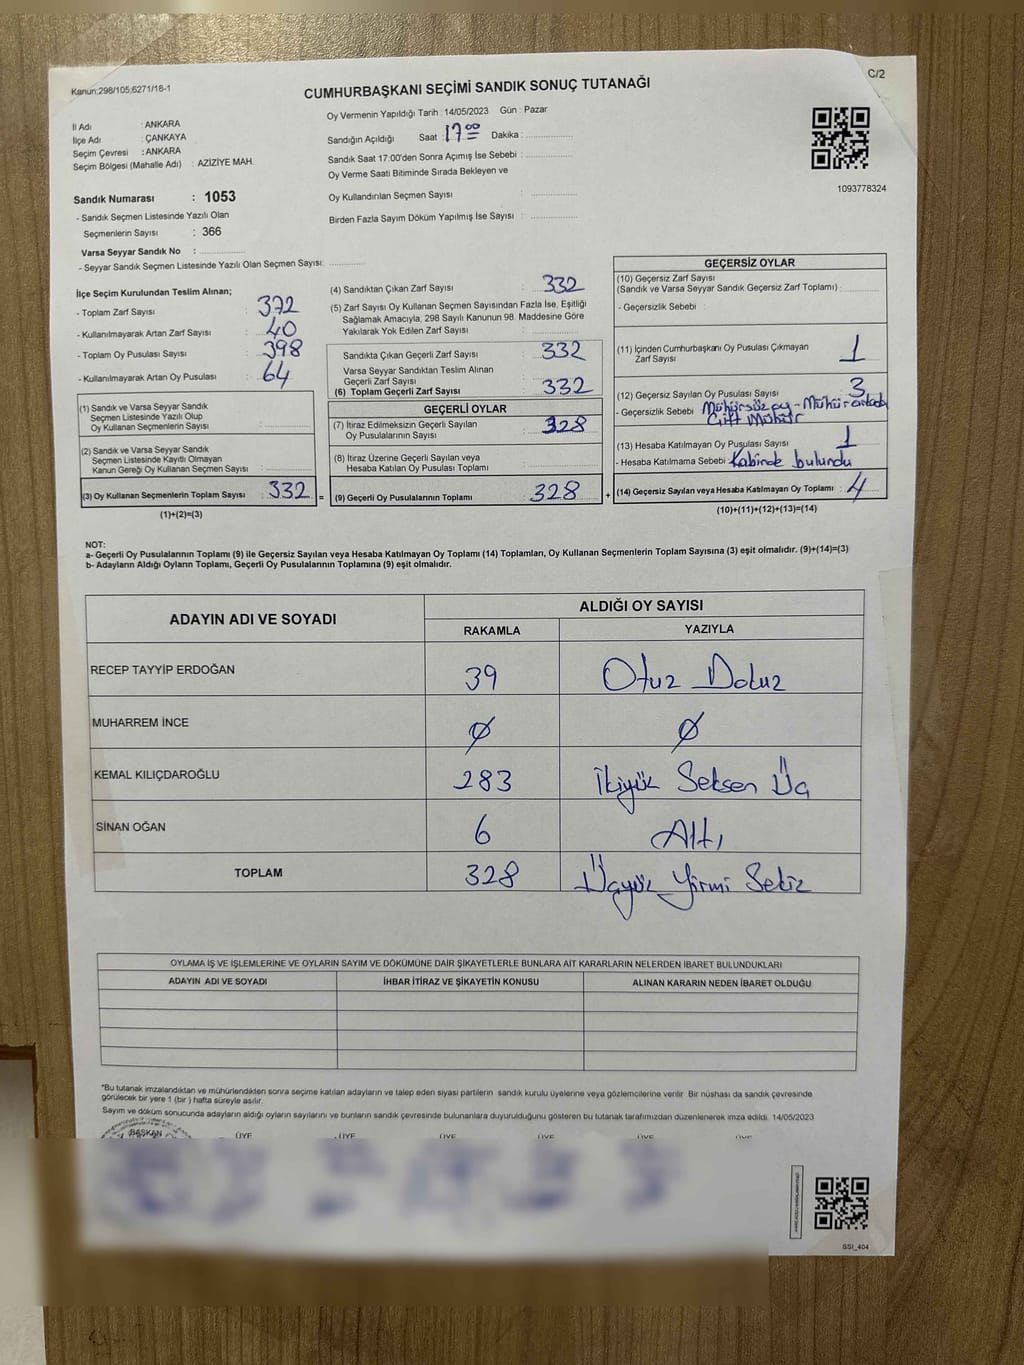 Kanun;298/105;6271/18-1
C/2
CUMHURBAŞKANI SEÇİMİ SANDIK SONUÇ TUTANAĞI
İl Adı : ANKARA
İlçe Adı : ÇANKAYA
Seçim Çevresi : ANKARA
Seçim Bölgesi (Mahalle Adı) : AZİZİYE MAH.
Sandık Numarası : 1053
- Sandık Seçmen Listesinde Yazılı Olan
Seçmenlerin Sayısı : 366
Varsa Seyyar Sandık No :
- Seyyar Sandık Seçmen Listesinde Yazılı Olan Seçmen Sayısı:
Oy Vermenin Yapıldığı Tarih : 14/05/2023 Gün : Pazar
Sandığın Açıldığı Saat 17 00 Dakika :
Sandık Saat 17:00'den Sonra Açımış İse Sebebi :
Oy Verme Saati Bitiminde Sırada Bekleyen ve
Oy Kullandırılan Seçmen Sayısı :
Birden Fazla Sayım Döküm Yapılmış İse Sayısı :
1093778324
İlçe Seçim Kurulundan Teslim Alınan;
- Toplam Zarf Sayısı : 372
- Kullanılmayarak Artan Zarf Sayısı : 40
- Toplam Oy Pusulası Sayısı : 398
- Kullanılmayarak Artan Oy Pusulası : 64
(1) Sandık ve Varsa Seyyar Sandık
Seçmen Listesinde Yazılı Olup
Oy Kullanan Seçmenlerin Sayısı :
(2) Sandık ve Varsa Seyyar Sandık
Seçmen Listesinde Kayıtlı Olmayan
Kanun Gereği Oy Kullanan Seçmen Sayısı :
(3) Oy Kullanan Seçmenlerin Toplam Sayısı : 332 =
(1)+(2)=(3)
(4) Sandıktan Çıkan Zarf Sayısı : 332
(5) Zarf Sayısı Oy Kullanan Seçmen Sayısından Fazla İse, Eşitliği
Sağlamak Amacıyla, 298 Sayılı Kanunun 98. Maddesine Göre
Yakılarak Yok Edilen Zarf Sayısı :
Sandıkta Çıkan Geçerli Zarf Sayısı : 332
Varsa Seyyar Sandıktan Teslim Alınan
Geçerli Zarf Sayısı :
(6) Toplam Geçerli Zarf Sayısı : 332
GEÇERLİ OYLAR
(7) İtiraz Edilmeksizin Geçerli Sayılan
Oy Pusulalarının Sayısı : 328
(8) İtiraz Üzerine Geçerli Sayılan veya
Hesaba Katılan Oy Pusulası Toplamı :
(9) Geçerli Oy Pusulalarının Toplamı : 328 +
GEÇERSİZ OYLAR
(10) Geçersiz Zarf Sayısı
(Sandık ve Varsa Seyyar Sandık Geçersiz Zarf Toplamı) :
- Geçersizlik Sebebi :
(11) İçinden Cumhurbaşkanı Oy Pusulası Çıkmayan
Zarf Sayısı : 1
(12) Geçersiz Sayılan Oy Pusulası Sayısı : 3
- Geçersizlik Sebebi Mühürsüz oy - Mühür ortada
Çift Mühür
(13) Hesaba Katılmayan Oy Pusulası Sayısı : 1
- Hesaba Katılmama Sebebi Kabinde bulundu
(14) Geçersiz Sayılan veya Hesaba Katılmayan Oy Toplamı : 4
(10)+(11)+(12)+(13)=(14)
NOT:
a- Geçerli Oy Pusulalarının Toplamı (9) ile Geçersiz Sayılan veya Hesaba Katılmayan Oy Toplamı (14) Toplamları, Oy Kullanan Seçmenlerin Toplam Sayısına (3) eşit olmalıdır. (9)+(14)=(3)
b- Adayların Aldığı Oyların Toplamı, Geçerli Oy Pusulalarının Toplamına (9) eşit olmalıdır.
ADAYIN ADI VE SOYADI ALDIĞI OY SAYISI
RAKAMLA YAZIYLA
RECEP TAYYİP ERDOĞAN 39 Otuz Dokuz
MUHARREM İNCE Ø Ø
KEMAL KILIÇDAROĞLU 283 İkiyüz Seksen Üç
SİNAN OĞAN 6 Altı
TOPLAM 328 Üçyüz Yirmi Sekiz
OYLAMA İŞ VE İŞLEMLERİNE VE OYLARIN SAYIM VE DÖKÜMÜNE DAİR ŞİKAYETLERLE BUNLARA AİT KARARLARIN NELERDEN İBARET BULUNDUKLARI
ADAYIN ADI VE SOYADI İHBAR İTİRAZ VE ŞİKAYETİN KONUSU ALINAN KARARIN NEDEN İBARET OLDUĞU
*Bu tutanak imzalandıktan ve mühürlendikten sonra seçime katılan adayların ve talep eden siyasi partilerin sandık kurulu üyelerine veya gözlemcilerine verilir. Bir nüshası da sandık çevresinde
görülecek bir yere 1 (bir) hafta süreyle asılır.
Sayım ve döküm sonucunda adayların aldığı oyların sayılarını ve bunların sandık çevresinde bulunanlara duyurulduğunu gösteren bu tutanak tarafımızdan düzenlenerek imza edildi. 14/05/2023
BAŞKAN ÜYE ÜYE ÜYE ÜYE ÜYE ÜYE
SSİ_404